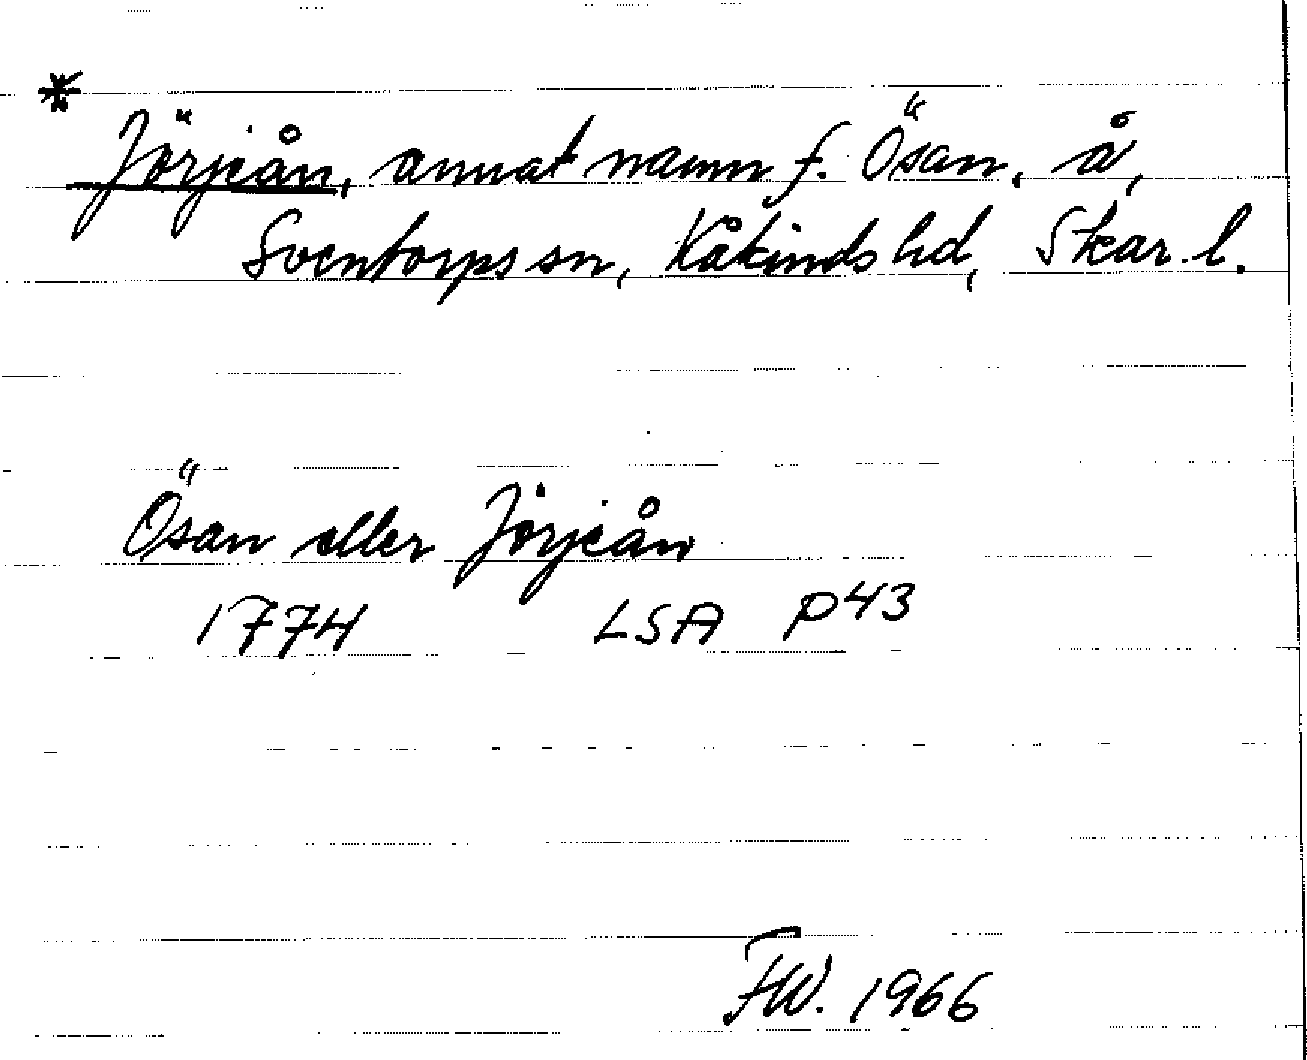 * Jörjeån, annat namn f. Ösan, å,
Sventorps sn, Kåkinds hd, Skar. l.
Ösan eller Jörjeån
1774 LSA P43
FW. 1966